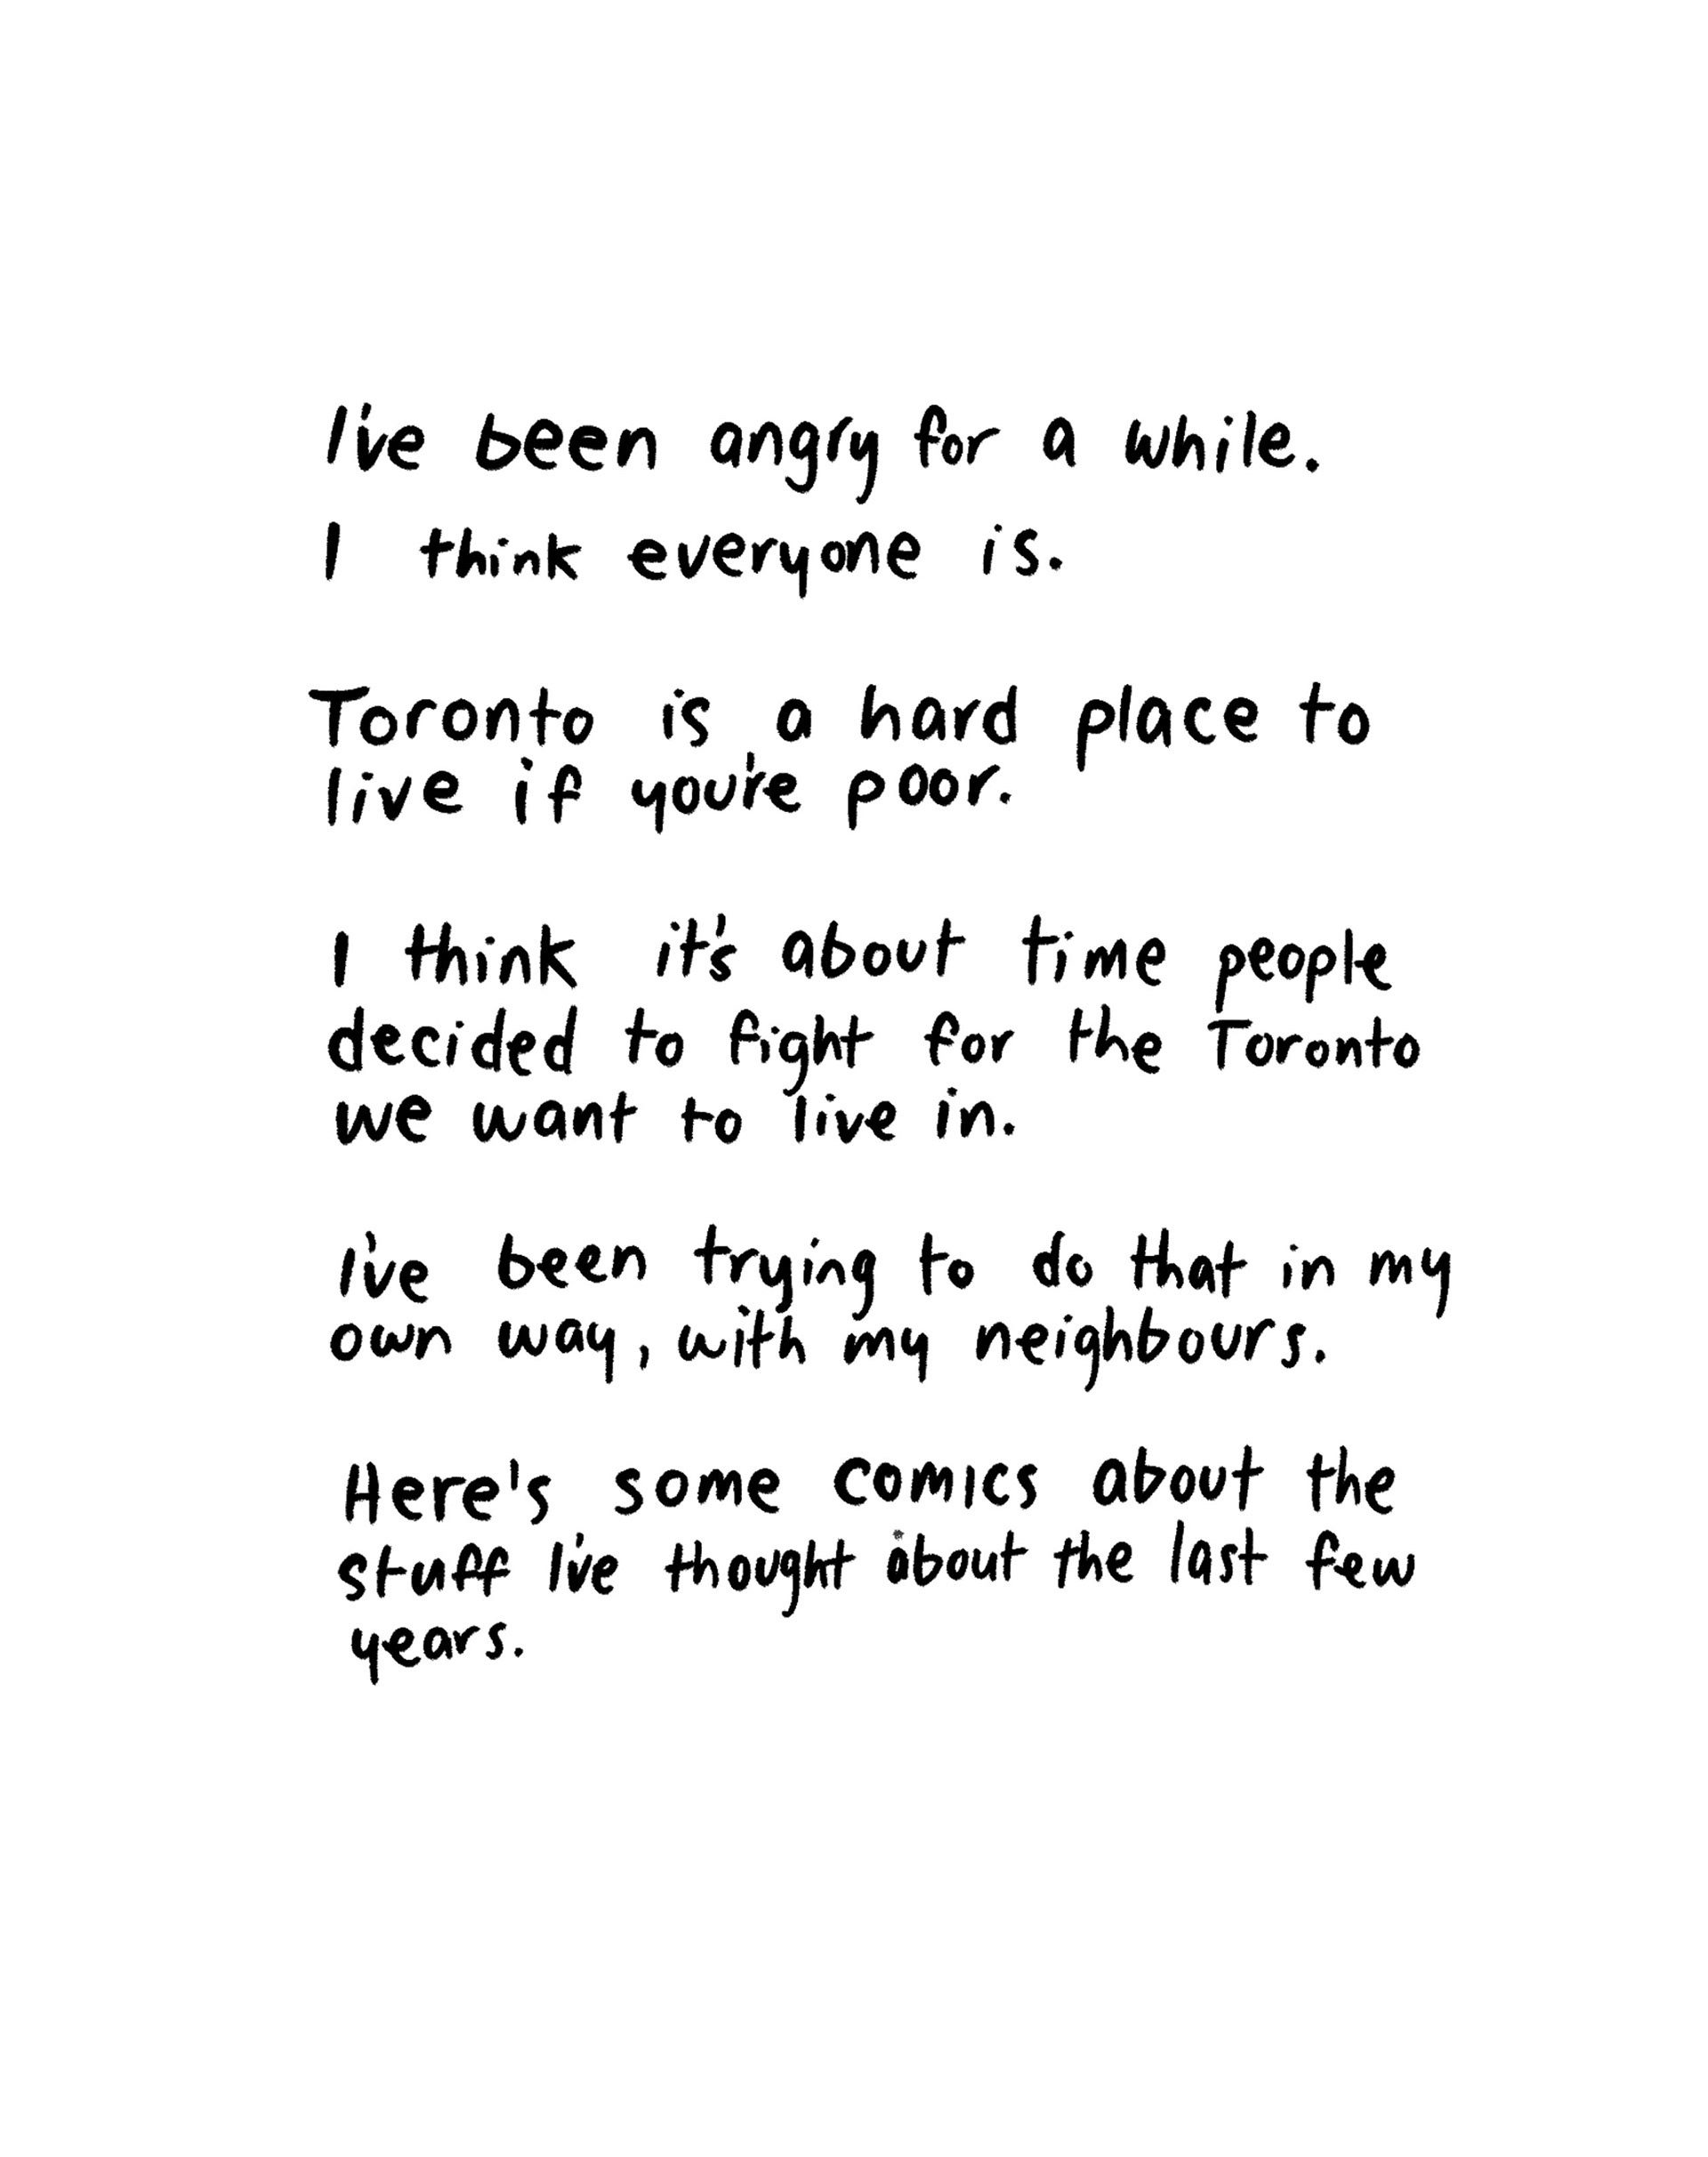 I've been angry for a while.
I think everyone is.
Toronto is a hard place to
live if you're poor.
I think it's about time people
decided to fight for the Toronto
we want to live in.
I've been trying to do that in my
own way, with my neighbours.
Here's some comics about the
stuff I've thought about the last few
years.